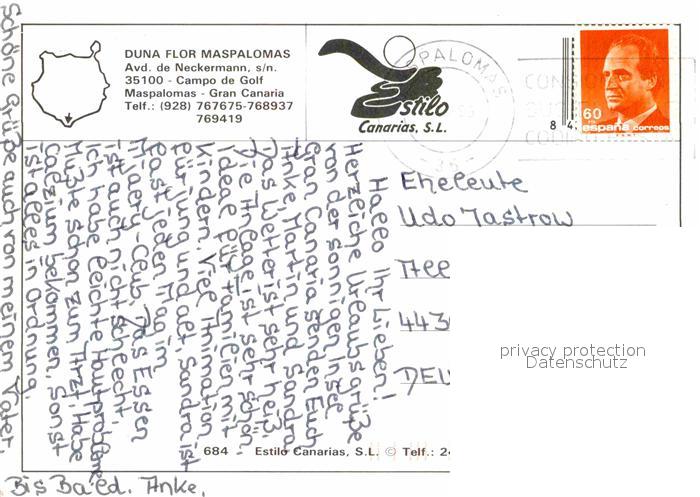 DUNA FLOR MASPALOMAS
Avd. de Neckermann, s/n.
35100 - Campo de Golf
Maspalomas - Gran Canaria
Telf.: (928) 767675-768937
769419
Estilo
Canarias, S.L.
SPALOMAS
- 35 -
CON
CÓDI
8 4
60
españa correos
Eheleute
Udo Jastrow
All
443
DEU
privacy protection
Datenschutz
Hallo Ihr Lieben!
Herzliche Urlaubsgrüße
von der sonnigen Insel
Gran Canaria senden Euch
Anke, Martin und Sandra.
Das Wetter ist sehr heiß.
Die Anlage ist sehr schön.
Ideal für Familien mit
Kindern. Viel Animation
für jung und alt. Sandra ist
fast jeden Mag im
Mairy-Club. Das Essen
ist auch nicht schlecht.
Ich habe leichte Hautprobleme
Mußte schon zum Arzt. Habe
Calzium bekommen, sonst
ist alles in Ordnung.
Schöne Grüße auch von meinem Vater.
Bis Bald. Anke.
684 - Estilo Canarias, S.L. © Telf.: 24